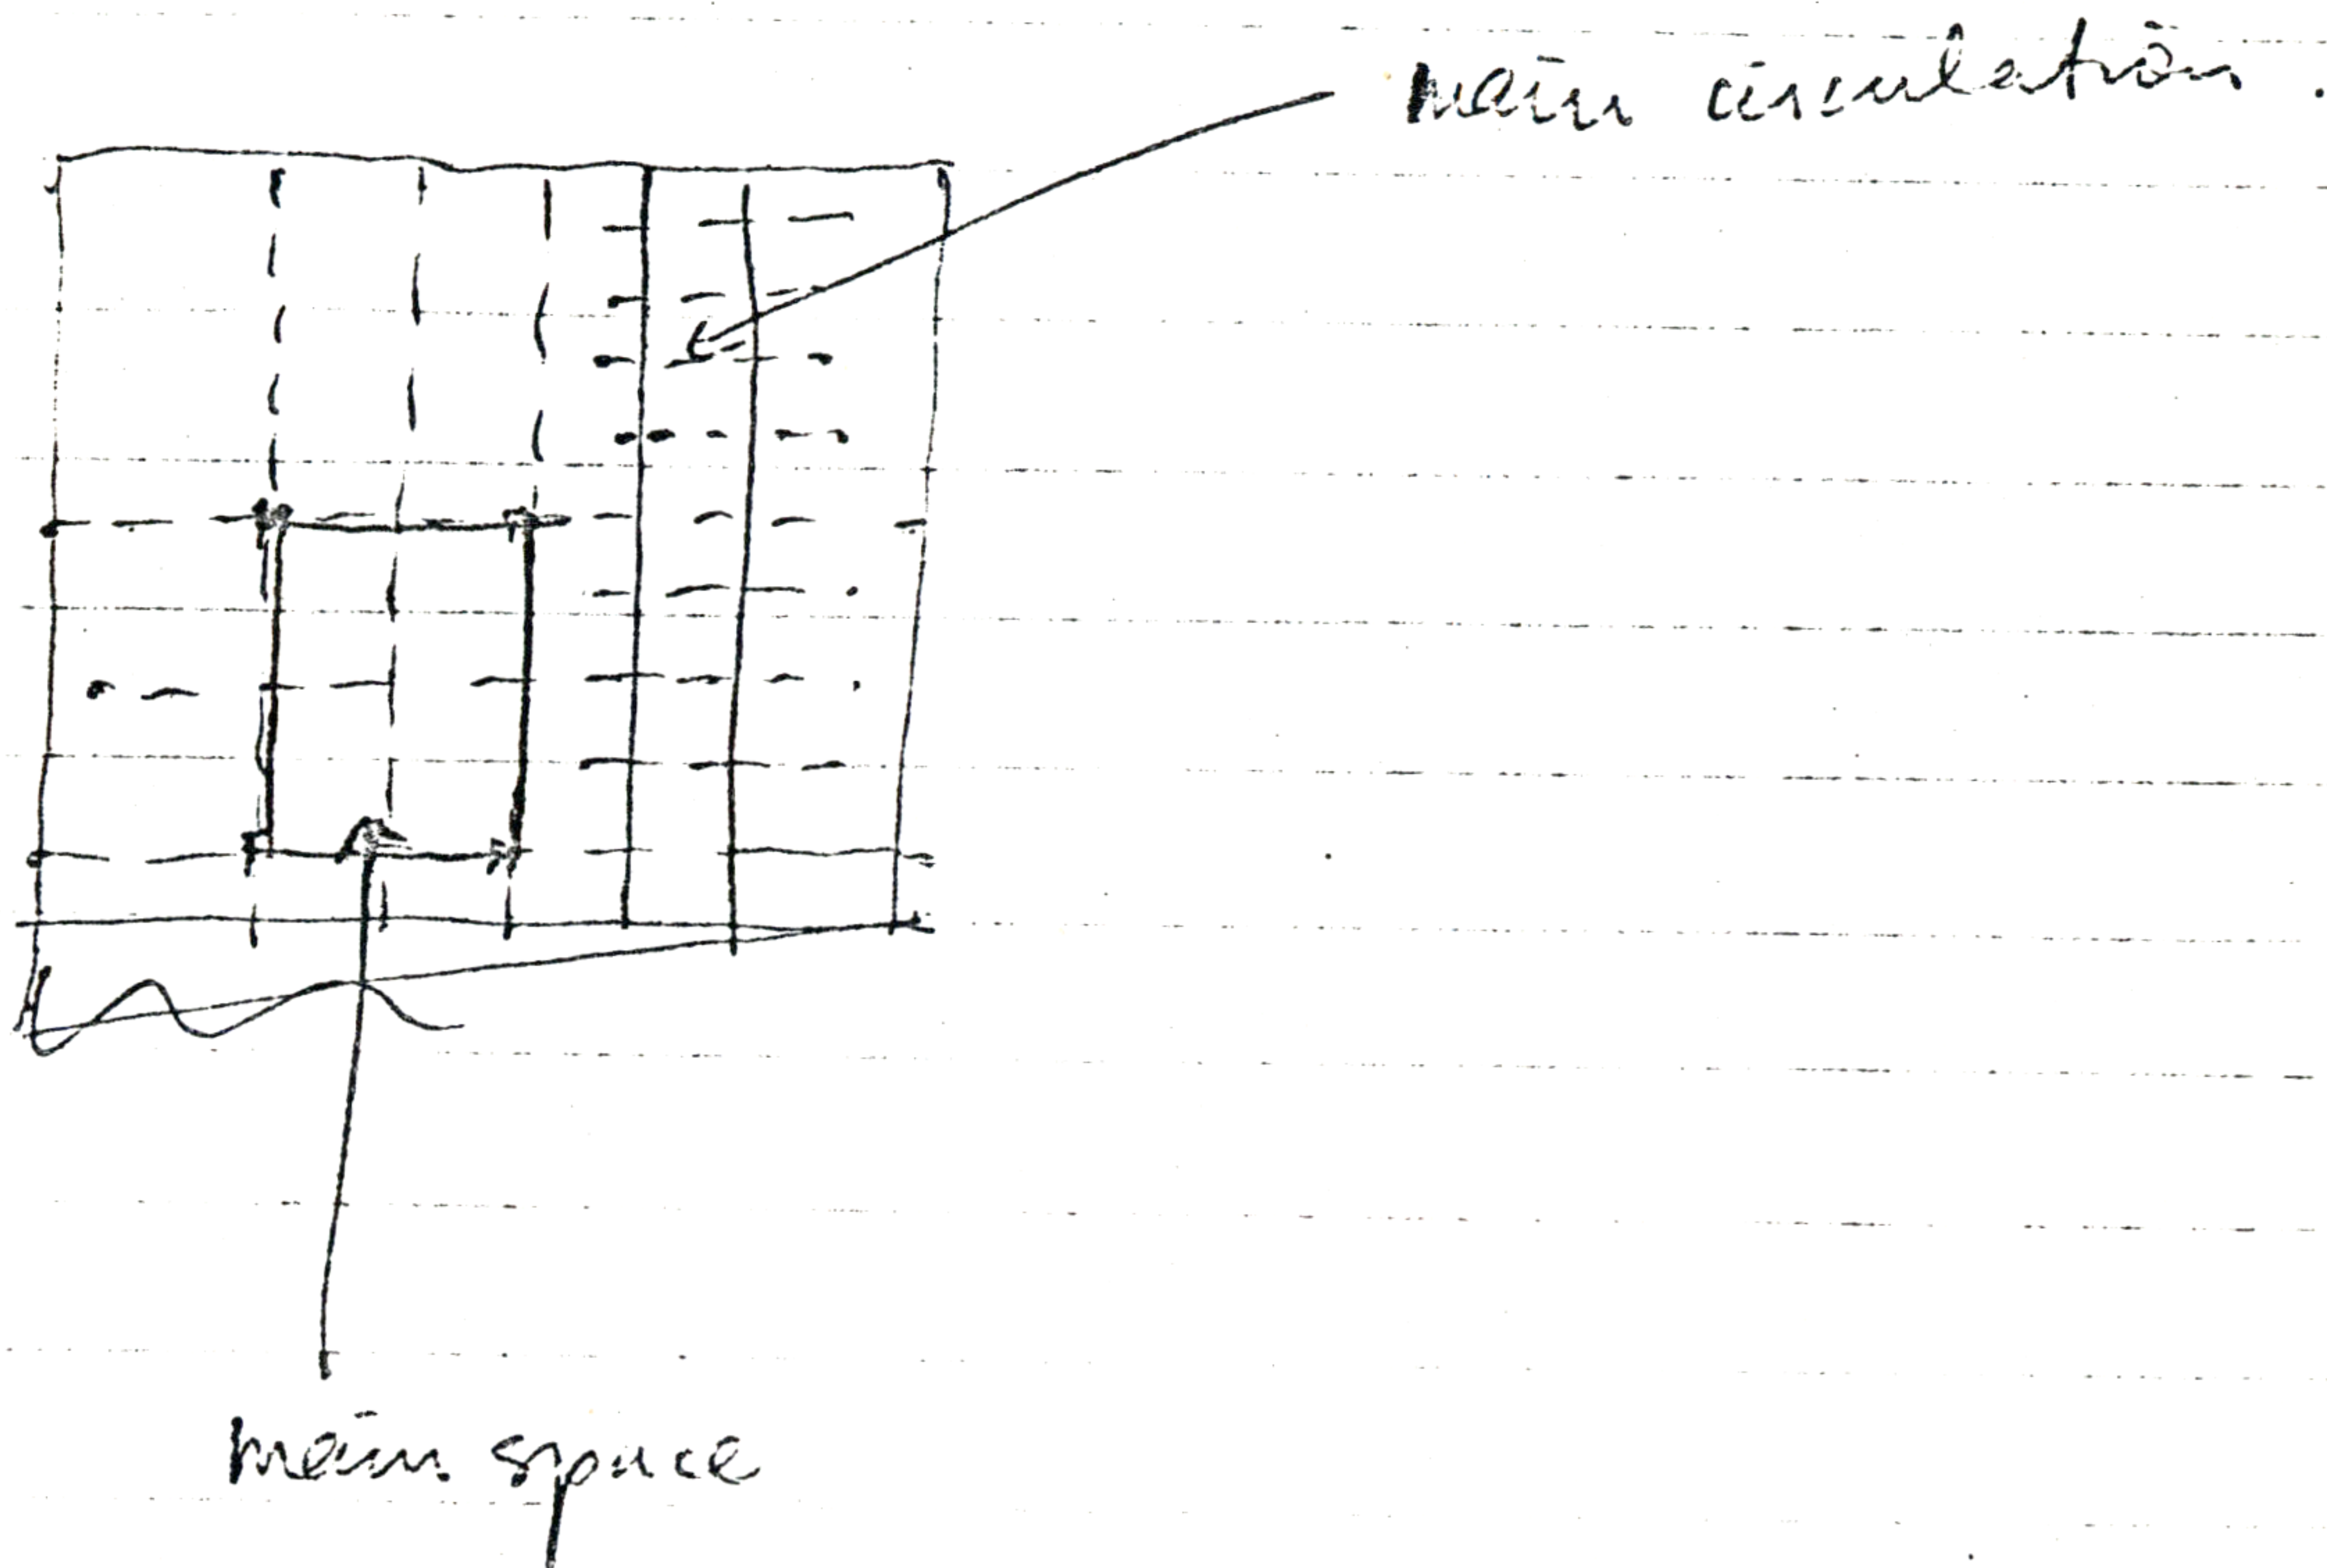 main circulation.
main space